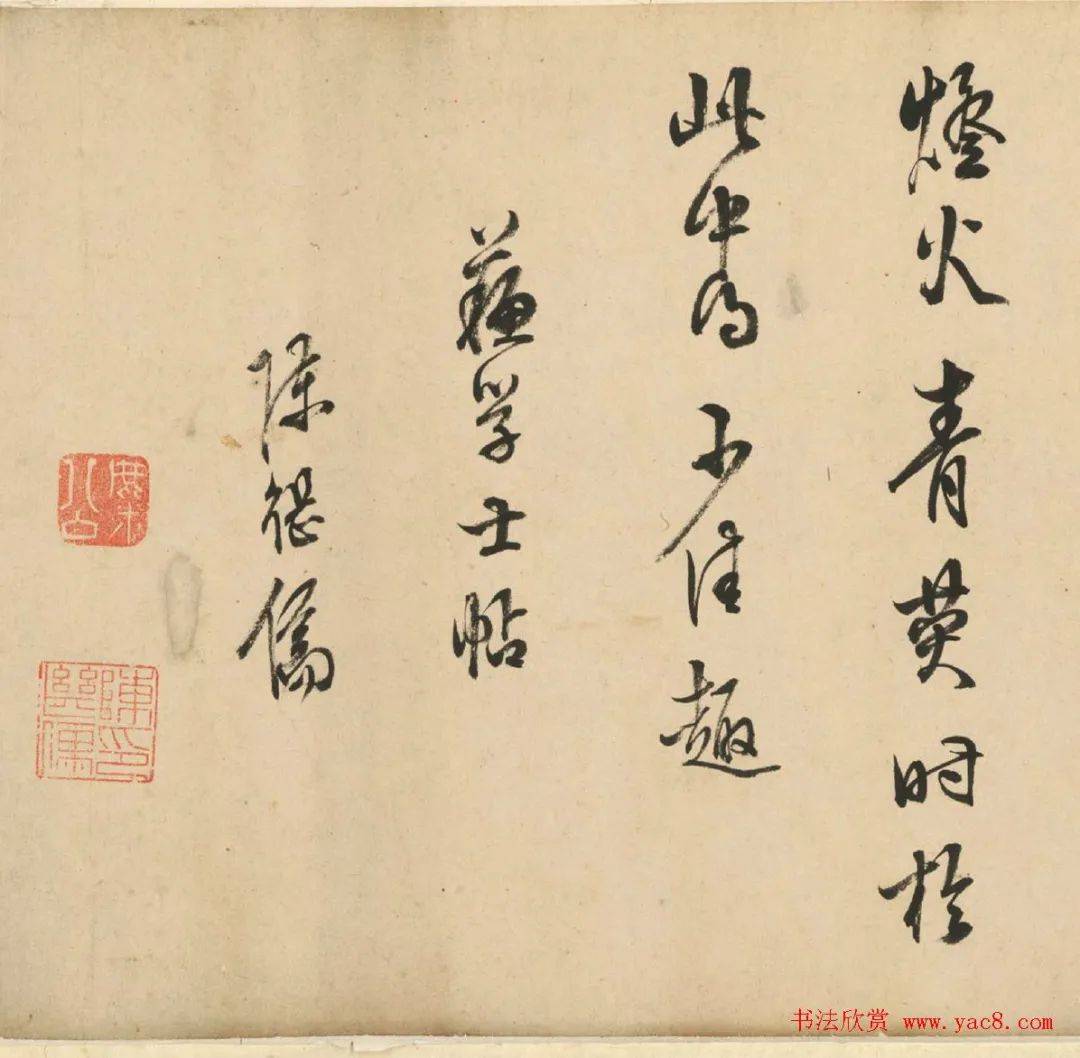 燈火青熒时於
此中得少佳趣
蘇学士帖
陳継儒
陳印継儒
书法欣赏 www.yac8.com